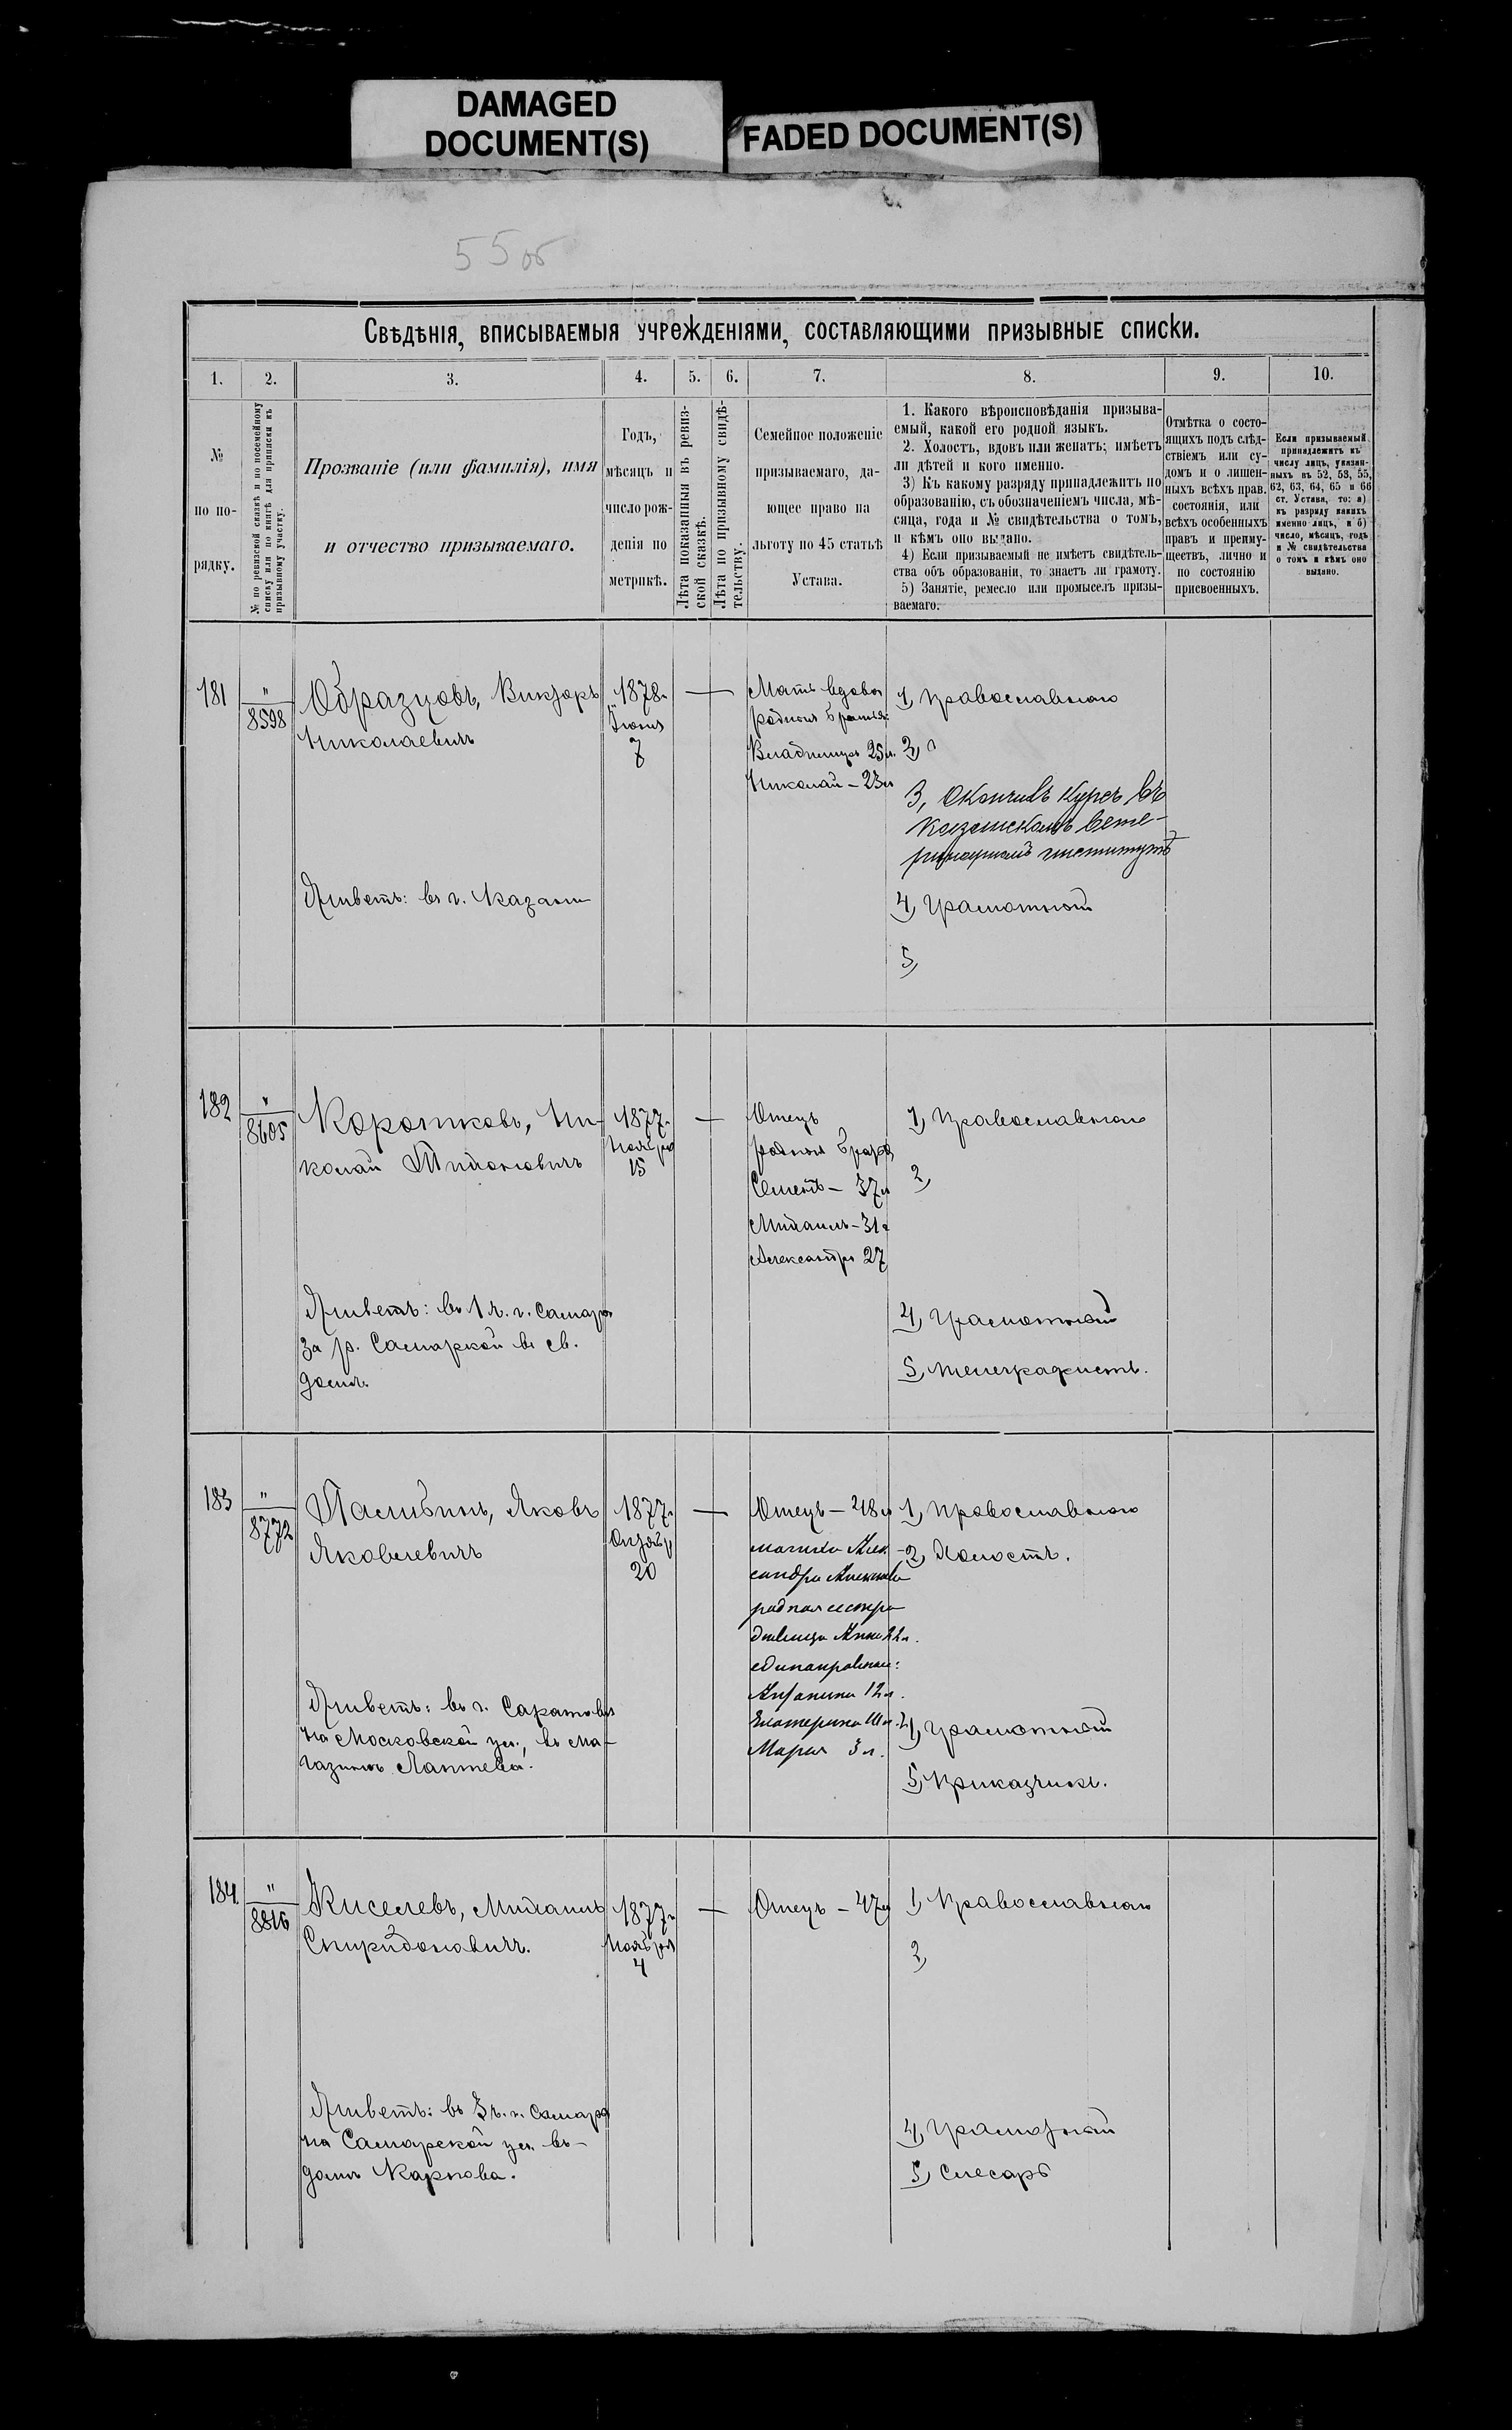 DAMAGED
DOCUMENT(S)
FADED DOCUMENT(S)
55 об
Свѣдѣнія, вписываемыя учрежденіями, составляющими призывные списки.
1. 2. 3. 4. 5. 6. 7. 8. 9. 10.
№
по по-
рядку.
№ по ревизской сказкѣ и по посемейному
списку или по книгѣ для приписки къ
призывному участку.
Прозваніе (или фамилія), имя
и отчество призываемаго.
Годъ,
мѣсяцъ и
число рож-
денія по
метрикѣ.
Лѣта показанныя въ ревиз-
ской сказкѣ.
Лѣта по призывному свидѣ-
тельству.
Семейное положеніе
призываемаго, да-
ющее право на
льготу по 45 статьѣ
Устава.
1. Какого вѣроисповѣданія призыва-
емый, какой его родной языкъ.
2. Холостъ, вдовъ или женатъ; имѣетъ
ли дѣтей и кого именно.
3) Къ какому разряду принадлежитъ по
образованію, съ обозначеніемъ числа, мѣ-
сяца, года и № свидѣтельства о томъ,
и кѣмъ оно выдано.
4) Если призываемый не имѣетъ свидѣтель-
ства объ образованіи, то знаетъ ли грамоту.
5) Занятіе, ремесло или промыселъ призы-
ваемаго.
Отмѣтка о состо-
ящихъ подъ слѣд-
ствіемъ или су-
домъ и о лишен-
ныхъ всѣхъ прав.
состоянія, или
всѣхъ особенныхъ
правъ и преиму-
ществъ, лично и
по состоянію
присвоенныхъ.
Если призываемый
принадлежитъ къ
числу лицъ, указан-
ныхъ въ 52, 53, 55,
62, 63, 64, 65 и 66
ст. Устава, то: а)
къ разряду какихъ
именно лицъ, и б)
число, мѣсяцъ, годъ
и № свидѣтельства
о томъ и кѣмъ оно
выдано.
181
"
8598
Образцовъ, Викторъ
Николаевичъ
Живетъ: въ г. Казани
1878г.
Іюня
7
—
Мать вдова
родные братья:
Владимиръ 25л.
Николай – 23л
1, Православного
2,
3, Окончивъ курсъ въ
Казанскомъ вете-
ринарномъ институтѣ
4, Грамотный
5,
182
"
8605
Коротковъ, Ни-
колай Тихоновичъ
Живетъ: въ 1 ч. г. Самары
За р. Самаркой въ св.
домѣ
1877г.
Ноября
15
—
Отецъ
родные братья
Семенъ – 37л
Михаилъ – 31г
Александръ 27
1, Православного
2,
4, Грамотный
5, Телеграфистъ.
183
"
8772
Паліѣинъ, Яковъ
Яковлевичъ
Живетъ: въ г. Саратовѣ
На Московской ул., въ ма-
газинѣ Лаптева.
1877г.
Октября
20
—
Отецъ – 48л
мачиха Алек-
сандра
родная сестра
дѣвица Анна 22л.
единокровныя:
Антонина 12л.
Екатерина
Марія 3л.
1, Православного
2, Холостъ.
4, Грамотный
5, Приказчикъ.
184
"
8816
Киселевъ, Михаилъ
Спиридоновичъ.
Живетъ: въ 3 ч. г. Самары
На Самарской ул. въ
домѣ Карпова.
1877г.
Ноября
4
—
Отецъ – 47л
1, Православного
2,
4, Грамотный
5, Слесарь